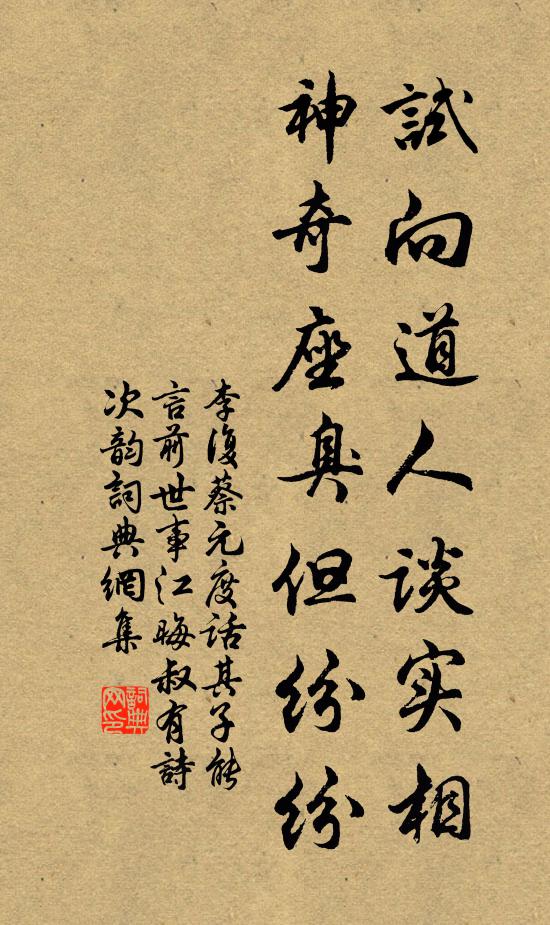 試向道人談实相
神奇座臭但紛紛
李復蔡元度話其子能
言前世事江晦叔有詩
次韵詞典網集
詞典网印